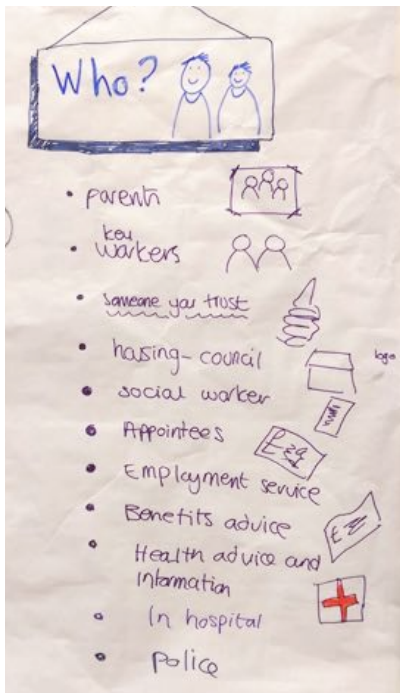 Who?
• parents
key
• workers
• someone you trust
• housing - council
logo
• social worker
• Appointees
• Employment service
• Benefits advice
• Health advice and
information
• In hospital
• police